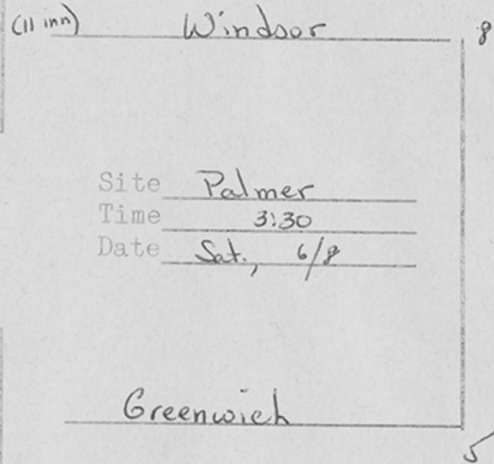 (11 inn) Windsor 8
Site Palmer
Time 3:30
Date Sat., 6/8
Greenwich
5